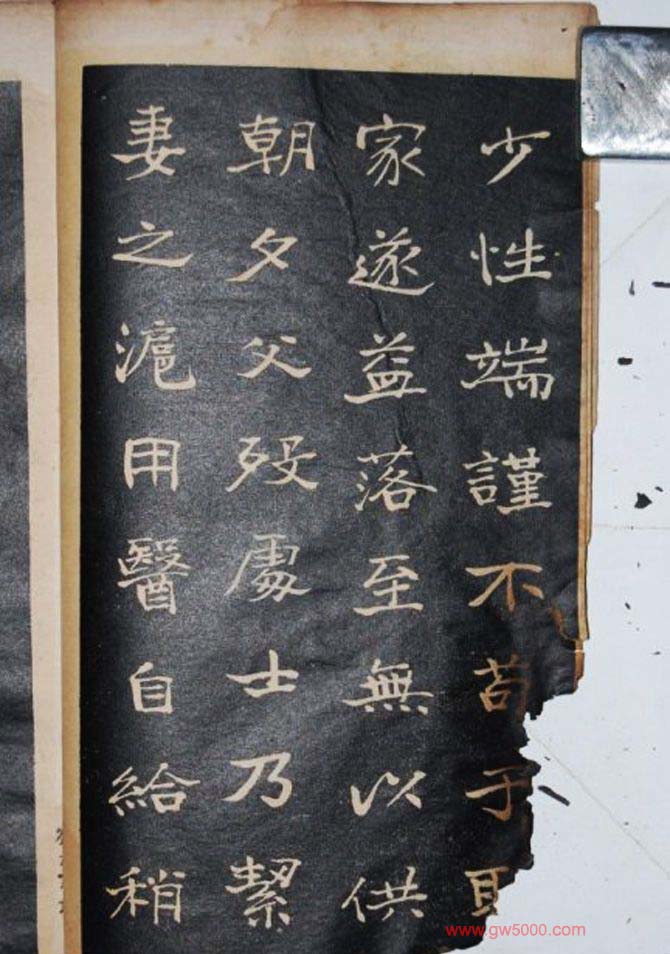 少性端謹不苟于
家遂益落至無以供
朝夕父歿處士乃絜
妻之滬用醫自給稍
www.gw5000.com